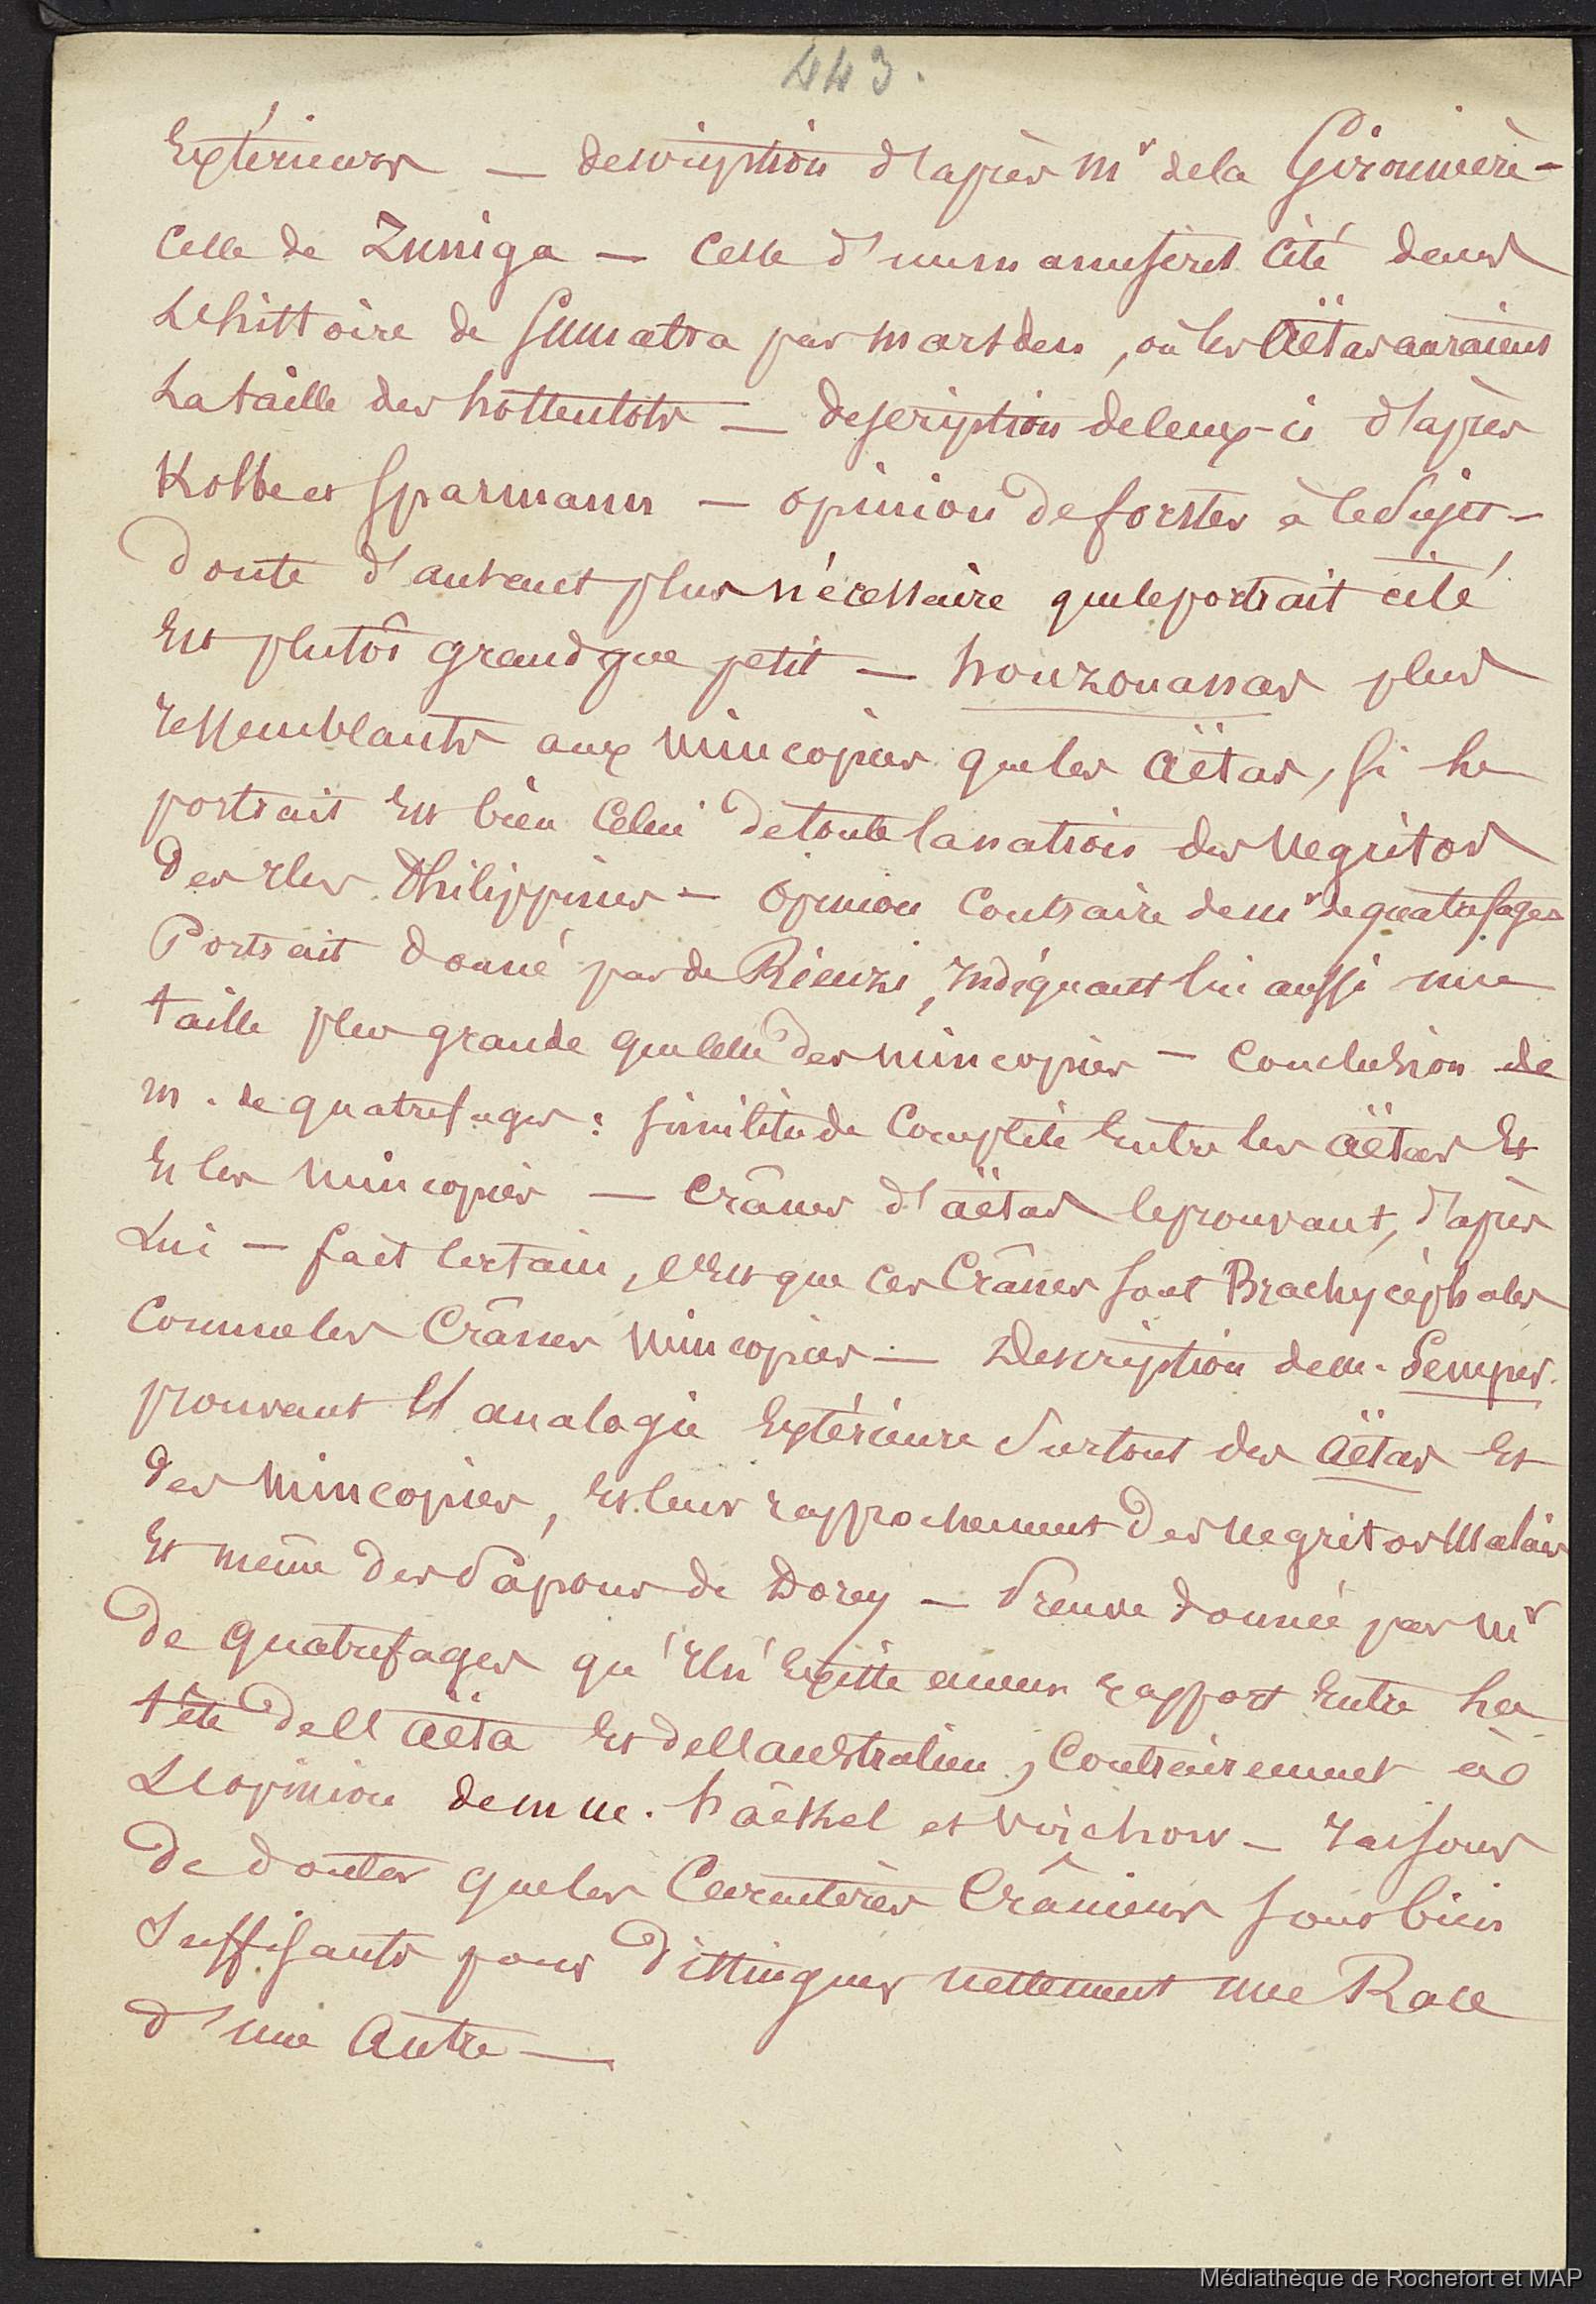 443.
Extérieurs — description d'après Mr de la Gironnière —
Celle de Zuniga — Celle d'un manuscrit cité dans
L'histoire de Sumatra par Marsden, où les Aëtas auraient
La taille des hottentots — description de ceux-ci d'après
Kolbe et Sparmann — opinion de forster à ce sujet —
doute d'autant plus nécessaire que le portrait cité
Est plutôt grand que petit — houzouanas plus
ressemblants aux Mincopies que les Aëtas, si le
portrait Est bien Celui de toute la nation des Negritos
des Iles Philippines — Opinion Contraire de Mr de quatrefages
Portrait donné par de Rienzi, Indiquant lui aussi une
taille plus grande que celle des Mincopies — Conclusion de
M. de quatrefages : similitude Complète Entre les Aëtas Et
Et les Mincopies — Crânes d'aëtas le prouvant, d'après
Lui — fait Certain, C'Est que ces Crânes sont Brachycéphales
Comme les Crânes Mincopies — Description de M. Semper
prouvant l'analogie Extérieure surtout des Aëtas Et
des Mincopies, Et leur rapprochement des Negritos Malais
Et même des Papous de Dorey — Preuve donnée par Mr
de quatrefages qu'Il n'Existe aucun rapport Entre la
tête de l'Aëta Et de l'australien, Contrairement à
L'opinion de MM. Haëckel et Virchow — raisons
de douter que les Caractères Crâniens sont bien
Suffisants pour distinguer nettement une Race
d'une Autre —
Médiathèque de Rochefort et MAP